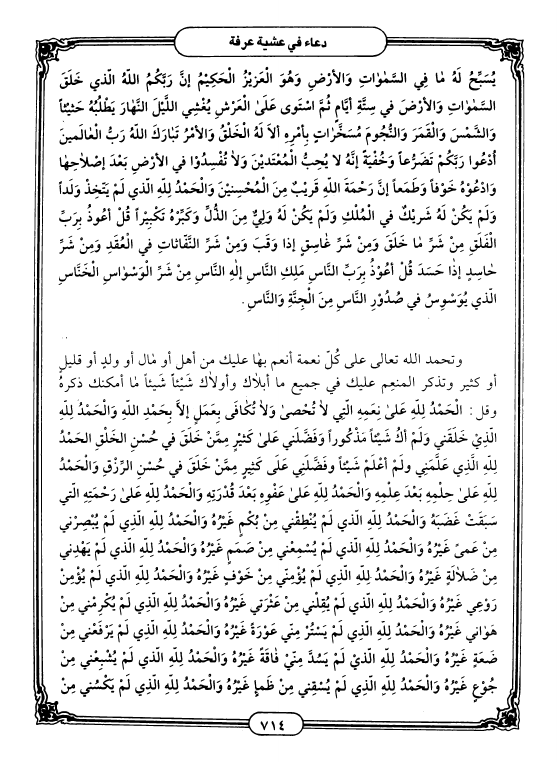 دعاء في عشية عرفة
يُسَبِّحُ لَهُ مٰا فِي السَّمٰوَاتِ وَالأَرْضِ وَهُوَ الْعَزِيْزُ الْحَكِيْمُ إنَّ رَبَّكُمُ اللهُ الَّذي خَلَقَ
السَّمٰوَاتِ وَالأَرْضَ في سِتَّةِ أَيَّامٍ ثُمَّ اسْتَوى عَلَىٰ الْعَرْشِ يُغْشِي اللَّيْلَ النَّهارَ يَطْلُبُهُ حَثيْثاً
وَالشَّمْسَ وَالْقَمَرَ وَالنُّجُومَ مُسَخَّرَاتٍ بِأَمْرِهِ ألاٰ لَهُ الْخَلْقُ وَالأَمْرُ تَبَارَكَ اللهُ رَبُّ الْعٰالَمينَ
اُدْعُوا رَبَّكُمْ تَضَرُّعاً وَخُفْيَةً إنَّهُ لاٰ يُحِبُّ الْمُعْتَدينَ وَلاٰ تُفْسِدُوا في الأَرْضِ بَعْدَ إصْلاٰحِهٰا
وَادْعُوْهُ خَوْفاً وَطَمَعاً إنَّ رَحْمَةَ اللهِ قَرِيْبٌ مِنَ الْمُحْسِنيْنَ وَالْحَمْدُ لِلهِ الَّذي لَمْ يَتَّخِذْ وَلَداً
وَلَمْ يَكُنْ لَهُ شَرِيْكٌ في الْمُلْكِ وَلَمْ يَكُنْ لَهُ وَلِيٌّ مِنَ الذُّلِّ وَكَبِّرْهُ تَكْبيْراً قُلْ أعُوذُ بِرَبِّ
الْفَلَقِ مِنْ شَرِّ مٰا خَلَقَ وَمِنْ شَرِّ غٰاسِقٍ إذا وَقَبَ وَمِنْ شَرِّ النَّفّاثاتِ في الْعُقَدِ وَمِنْ شَرِّ
حٰاسِدٍ إذٰا حَسَدَ قُلْ أعُوْذُ بِرَبِّ النَّاسِ مَلِكِ النَّاسِ إلٰهِ النَّاسِ مِنْ شَرِّ الْوَسْوٰاسِ الْخَنَّاسِ
الَّذي يُوَسْوِسُ في صُدُوْرِ النَّاسِ مِنَ الْجِنَّةِ وَالنَّاسِ .
وتحمد الله تعالى على كُلِّ نعمة أنعم بهٰا عليك من أهل أو مٰال أو ولدٍ أو قليلٍ
أو كثير وتذكر المنعِم عليك في جميع ما أبلاك وأولاك شَيْئاً شيئاً مٰا أمكنك ذكرهُ
وقل : الْحَمْدُ لِلهِ عَلىٰ نِعَمِهِ الَّتي لاٰ تُحْصىٰ وَلاٰ تُكٰافى بِعَمَلٍ إلاّ بِحَمْدِ اللهِ وَالْحَمْدُ لِلهِ
الَّذِيْ خَلَقَني وَلَمْ أكُ شَيْئاً مَذْكُوراً وَفَضَّلَني عَلىٰ كَثيْرٍ مِمَّنْ خَلَقَ في حُسْنِ الخَلْقِ الحَمْدُ
لِلهِ الَّذي عَلَّمَني ولَمْ أعْلَمْ شَيْئاً وفضَّلَني عَلَى كَثيْرٍ مِمَّنْ خَلَقَ في حُسْنِ الرِّزْقِ وَالْحَمْدُ
لِلهِ عَلىٰ حِلْمِهِ بَعْدَ عِلْمِهِ وَالْحَمْدُ لِلهِ عَلىٰ عَفْوِهِ بَعْدَ قُدْرَتِهِ وَالْحَمْدُ لِلهِ عَلىٰ رَحْمَتِهِ الَّتي
سَبَقَتْ غَضَبَهُ وَالْحَمْدُ لِلهِ الَّذي لَمْ يُنْطِقْني مِنْ بُكْمٍ غَيْرُهُ وَالْحَمْدُ لِلهِ الَّذِي لَمْ يُبْصِرْني
مِنْ عَمىً غَيْرُهُ وَالْحَمْدُ لِلهِ الَّذي لَمْ يُسْمِعْني مِنْ صَمَمٍ غَيْرُهُ وَالْحَمْدُ لِلهِ الَّذي لَمْ يَهْدِني
مِنْ ضَلاٰلَةٍ غَيْرُهُ وَالْحَمْدُ لِلهِ الَّذِي لَمْ يُؤْمِنّي مِنْ خَوْفٍ غَيْرُهُ وَالْحَمْدُ لِلهِ الَّذي لَمْ يُؤْمِنْ
رَوْعِي غَيْرُهُ وَالْحَمْدُ لِلهِ الَّذي لَمْ يُقِلْني مِنْ عَثْرَتي غَيْرُهُ وَالْحَمْدُ لِلهِ الَّذِي لَمْ يُكْرِمْني مِنْ
هَوَاني غَيْرُهُ وَالْحَمْدُ لِلهِ الَّذي لَمْ يَسْتُرْ مِنّي عَوْرَةً غَيْرُهُ وَالْحَمْدُ لِلهِ الَّذي لَمْ يَرْفَعْني مِنْ
ضَعَةٍ غَيْرُهُ وَالْحَمْدُ لِلهِ الَّذِيْ لَمْ يَسُدَّ مِنِّيْ فٰاقَةً غَيْرُهُ وَالْحَمْدُ لِلهِ الَّذي لَمْ يُشْبِعْني مِنْ
جُوْعٍ غَيْرُهُ وَالْحَمْدُ لِلهِ الَّذِي لَمْ يُسْقِني مِنْ ظَمَإٍ غَيْرُهُ وَالْحَمْدُ لِلهِ الَّذي لَمْ يَكْسُني مِنْ
٧١٤